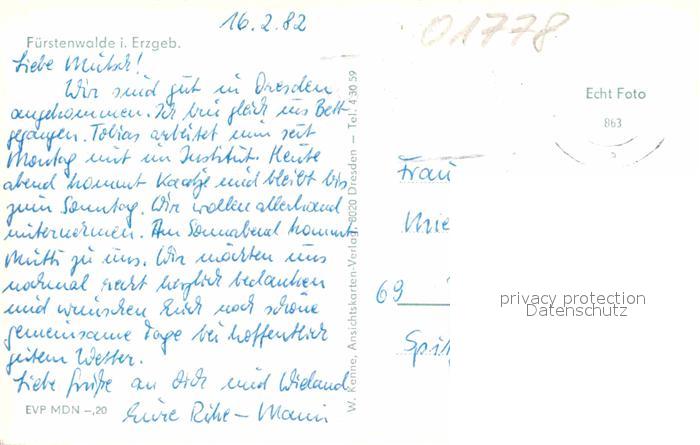 16.2.82
01778
Fürstenwalde i. Erzgeb.
Liebe Mutsch!
Wir sind gut in Dresden
angekommen. Ich bin gleich ins Bett
gegangen. Tobias arbeitet nun seit
Montag mit im Institut. Heute
abend kommt Kaatje und bleibt bis
zum Sonntag. Wir wollen allerhand
unternehmen. Am Sonnabend kommt
Mutti zu uns. Wir möchten uns
nochmal recht herzlich bedanken
und wünschen Euch noch schöne
gemeinsame Tage bei hoffentlich
gutem Wetter.
Liebe Grüße an Dich und Wieland
Eure Rike – Mann
EVP MDN -,20
W. Kenne, Ansichtskarten-Verlag, 8020 Dresden – Tel. 4 30 59
Echt Foto
863
Frau
69
privacy protection
Datenschutz